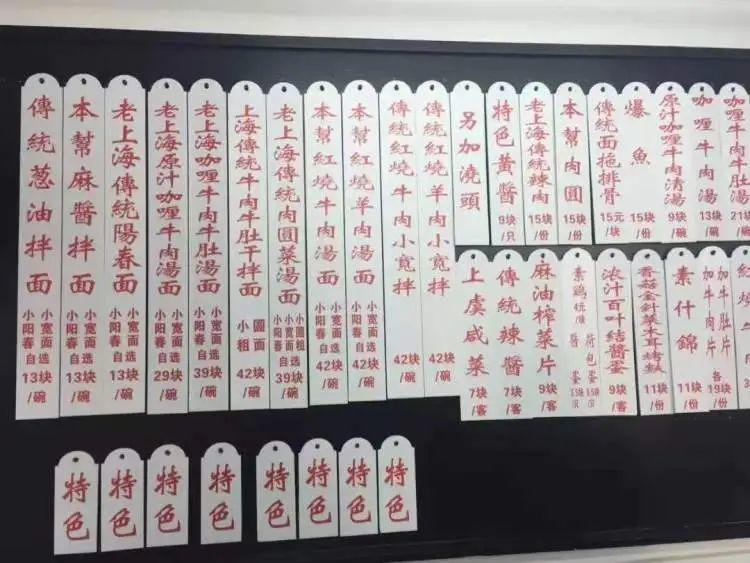 傳統葱油拌面
小阳春 小宽面
自选
13块
/碗
本幫麻醬拌面
小阳春 小宽面
自选
13块
/碗
老上海傳統陽春面
小阳春 小宽面
自选
13块
/碗
老上海原汁咖喱牛肉湯面
小阳春 小宽面
自选
29块
/碗
老上海咖喱牛肉牛肚湯面
小阳春 小宽面
自选
39块
/碗
上海傳統牛肉牛肚干拌面
小粗 圆面
42块
/碗
老上海傳統肉圓菜湯面
小阳春 小宽面 圆粗
自选
39块
/碗
本幫紅燒牛肉湯面
小阳春 小宽面
自选
42块
/碗
本幫紅燒羊肉湯面
小阳春 小宽面
自选
42块
/碗
傳統紅燒牛肉小寬拌
42块
/碗
傳統紅燒羊肉小寬拌
42块
/碗
另加澆頭
特色黄醬
9块
/只
老上海傳統辣肉
15块
/份
本幫肉圓
15块
/份
傳統面拖排骨
15元
/块
爆魚
15块
/份
原汁咖喱牛肉清湯
9块
/碗
咖喱牛肉湯
13块
/碗
咖喱牛肉牛肚湯
21块
/碗
上虞咸菜
7块
/客
傳統辣醬
7块
/客
麻油榨菜片
9块
/客
素鷄
荷包蛋
浓汁百叶結醬蛋
9块
/客
香菇金針菜木耳烤麩
11块
/份
素什錦
11块
/份
加牛肉片
加牛肚片
各
19块
/份
特色
特色
特色
特色
特色
特色
特色
特色